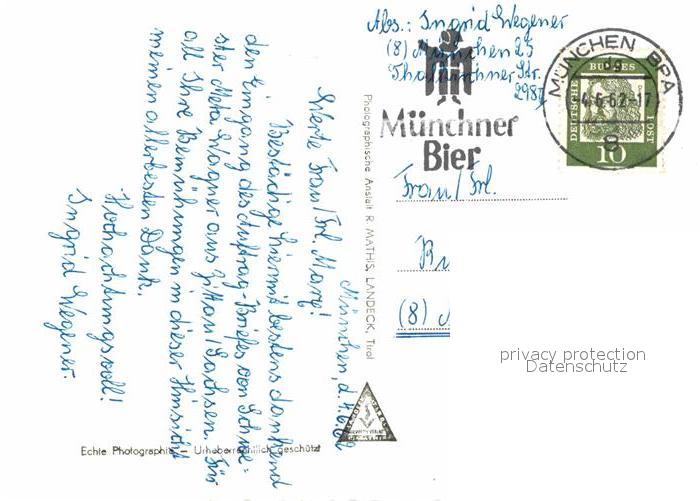 Abs.: Ingrid Wegener
(8) München 25
Thalkirchner Str.
298
MÜNCHEN BPA
4.6.62-17
8
DEUTSCHE BUNDES POST
10
Münchner
Bier
Frau/Frl.
(8)
privacy protection
Datenschutz
Photographische Anstalt R. MATHIS, LANDECK, Tirol
München, d. 4.6.62
Werte Frau/Frl. Marx!
Bestätige hiermit bestens dankend
den Eingang des Auftrag-Briefes von Schwe-
ster Meta Wagner aus Zittau/Sachsen. Für
all Ihre Bemühungen in dieser Hinsicht
meinen allerbesten Dank.
Hochachtungsvoll!
Ingrid Wegener.
Echte Photographie – Urheberrechtlich geschützt